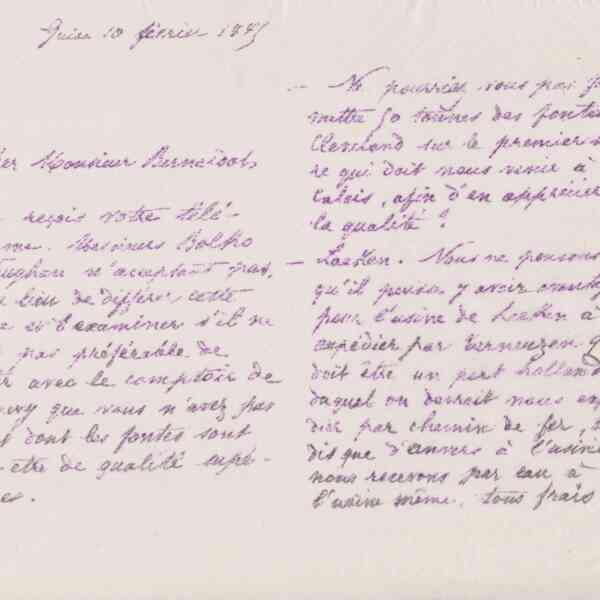 Guise 10 février 18
er Monsieur Bernardot
reçois votre télé-
me. Messieurs Bolkho
aughan n'acceptant pas,
lieu de différer cette
e et d'examiner s'il ne
pas préférable de
r avec le comptoir de
que vous n'avez pas
t dont les fontes sont
-etre de qualité supé-
es.
— Ne pourriez vous pas
mettre 50 tonnes des fontes
Cleveland sur le premier
re qui doit nous venir à
Calais, afin d'en apprécier
la qualité ?
— Laeken. Nous ne pensons
qu'il puisse y avoir avantage
pour l'usine de Laeken à
expédier par Terneuzen q
doit être un port holland
duquel on devrait nous exp
dier par chemin de fer, t
dis que d'anvers à l'usine
nous recevons par eau à
l'usine même, tous frais